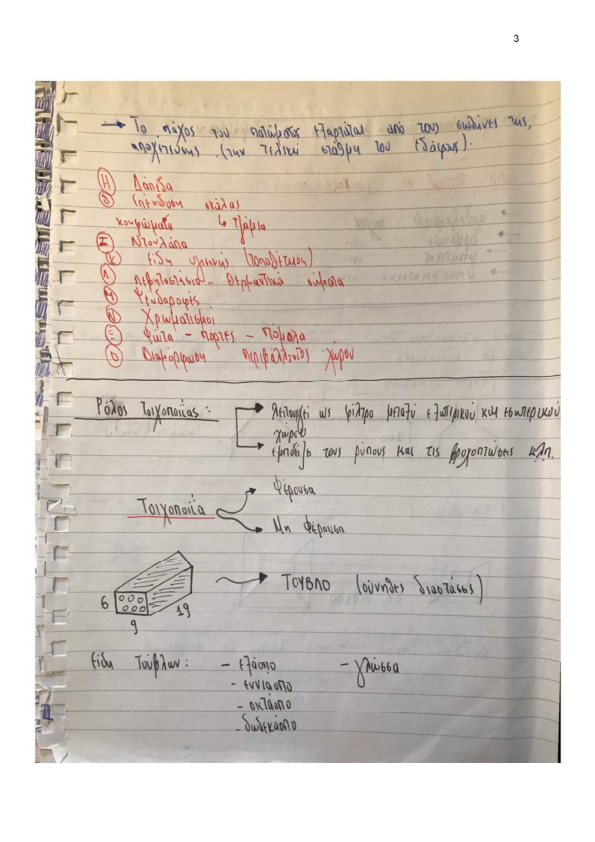 3
→ Το πάχος του πατώματος εξαρτάται από τους σωλήνες της
αποχέτευσης. (την τελική στάθμη του εδάφους).
Η Δάπεδα
Θ Επένδυση σκάλας
κουφώματα τζάμια
Ι Ντουλάπα
Κ Είδη υγιεινής (τοποθέτηση)
Λ Λεβητοστάσιο - θερμαντικά σώματα
Μ Ψευδοροφές
Ν Χρωματισμοί
Ξ Φώτα - πόρτες - πόμολα
Ο Διαμόρφωση περιβάλλοντος χώρου
Ρόλος τοιχοποιίας : → λειτουργεί ως φίλτρο μεταξύ εξωτερικού και εσωτερικού
χώρου
→ εμποδίζει τους ρύπους και τις βροχοπτώσεις κλπ.
Φέρουσα
Τοιχοποιία
Μη φέρουσα
→ ΤΟΥΒΛΟ (σύνηθες διαστάσης)
6
9
19
Είδη Τούβλων : - εξάοπο - γλώσσα
- εννιάοπο
- οκτάοπο
- δωδεκάοπο